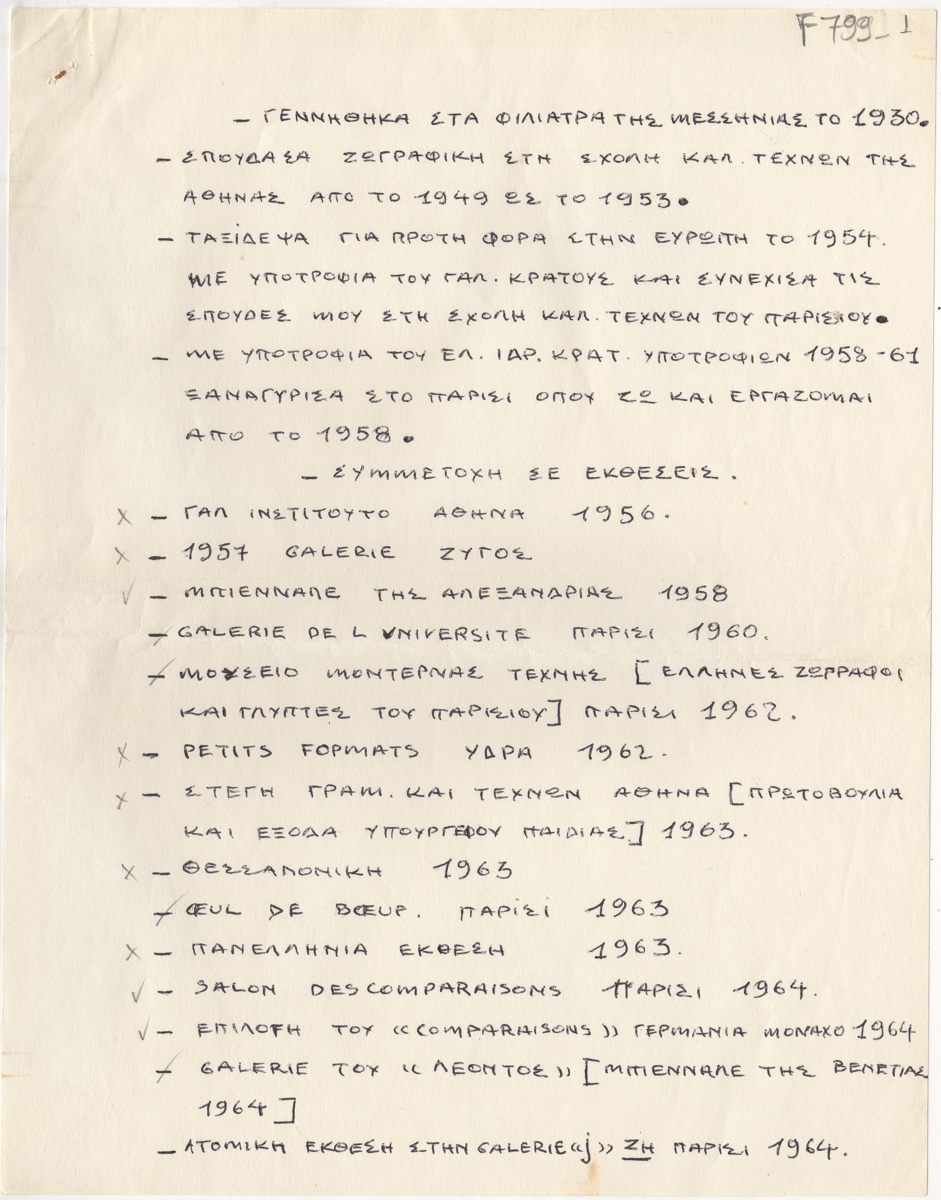 F 799_1
– ΓΕΝΝΗΘΗΚΑ ΣΤΑ ΦΙΛΙΑΤΡΑ ΤΗΣ ΜΕΣΣΗΝΙΑΣ ΤΟ 1930.
– ΣΠΟΥΔΑΣΑ ΖΩΓΡΑΦΙΚΗ ΣΤΗ ΣΧΟΛΗ ΚΑΛ. ΤΕΧΝΩΝ ΤΗΣ
ΑΘΗΝΑΣ ΑΠΟ ΤΟ 1949 ΩΣ ΤΟ 1953.
– ΤΑΞΙΔΕΨΑ ΓΙΑ ΠΡΟΤΗ ΦΟΡΑ ΣΤΗΝ ΕΥΡΩΠΗ ΤΟ 1954.
ΜΕ ΥΠΟΤΡΟΦΙΑ ΤΟΥ ΓΑΛ. ΚΡΑΤΟΥΣ ΚΑΙ ΣΥΝΕΧΙΣΑ ΤΙΣ
ΣΠΟΥΔΕΣ ΜΟΥ ΣΤΗ ΣΧΟΛΗ ΚΑΛ. ΤΕΧΝΩΝ ΤΟΥ ΠΑΡΙΣΙΟΥ.
– ΜΕ ΥΠΟΤΡΟΦΙΑ ΤΟΥ ΕΛ. ΙΔΡ. ΚΡΑΤ. ΥΠΟΤΡΟΦΙΩΝ 1958-61
ΞΑΝΑΓΥΡΙΣΑ ΣΤΟ ΠΑΡΙΣΙ ΟΠΟΥ ΖΩ ΚΑΙ ΕΡΓΑΖΟΜΑΙ
ΑΠΟ ΤΟ 1958.
– ΣΥΜΜΕΤΟΧΗ ΣΕ ΕΚΘΕΣΕΙΣ.
x – ΓΑΛ ΙΝΣΤΙΤΟΥΤΟ ΑΘΗΝΑ 1956.
x – 1957 GALERIE ΖΥΓΟΣ
✓ – ΜΠΙΕΝΝΑΛΕ ΤΗΣ ΑΛΕΞΑΝΔΡΙΑΣ 1958
– GALERIE DE L UNIVERSITE ΠΑΡΙΣΙ 1960.
– ΜΟΥΣΕΙΟ ΜΟΝΤΕΡΝΑΣ ΤΕΧΝΗΣ [ΕΛΛΗΝΕΣ ΖΩΓΡΑΦΟΙ
ΚΑΙ ΓΛΥΠΤΕΣ ΤΟΥ ΠΑΡΙΣΙΟΥ] ΠΑΡΙΣΙ 1962.
x – PETITS FORMATS ΥΔΡΑ 1962.
x – ΣΤΕΓΗ ΓΡΑΜ. ΚΑΙ ΤΕΧΝΩΝ ΑΘΗΝΑ [ΠΡΩΤΟΒΟΥΛΙΑ
ΚΑΙ ΕΞΟΔΑ ΥΠΟΥΡΓΕΙΟΥ ΠΑΙΔΙΑΣ] 1963.
x – ΘΕΣΣΑΛΟΝΙΚΗ 1963
– ŒUL DE BŒUP. ΠΑΡΙΣΙ 1963
x – ΠΑΝΕΛΛΗΝΙΑ ΕΚΘΕΣΗ 1963.
✓ – SALON DES COMPARAISONS ΠΑΡΙΣΙ 1964.
✓ – ΕΠΙΛΟΓΗ ΤΟΥ «COMPARAISONS» ΓΕΡΜΑΝΙΑ ΜΟΝΑΧΟ 1964
– GALERIE ΤΟΥ «ΛΕΟΝΤΟΣ» [ΜΠΙΕΝΝΑΛΕ ΤΗΣ ΒΕΝΕΤΙΑΣ
1964]
– ΑΤΟΜΙΚΗ ΕΚΘΕΣΗ ΣΤΗΝ GALERIE «j» ΖΗ ΠΑΡΙΣΙ 1964.